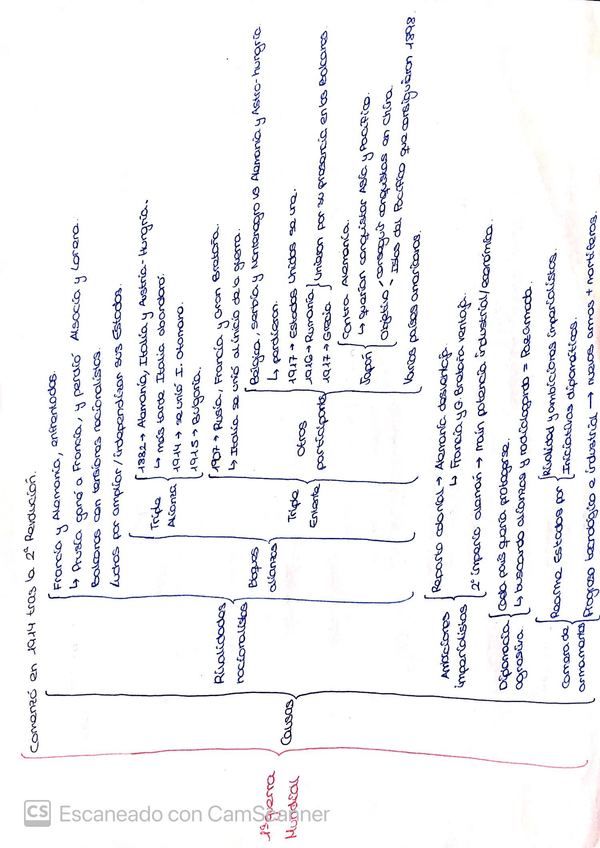 1ª guerra
Mundial
Comenzó en 1914 tras la 2ª Revolución.
Causas
Rivalidades
nacionalistas
Francia y Alemania, enfrentados.
↳ Prusia ganó a Francia, y perdió Alsacia y Lorena.
Balcanes con tensiones nacionalistas.
Luchas por ampliar/independizar sus Estados.
Bloques
alianzas
Triple
Alianza
1882 → Alemania, Italia y Austria-Hungría.
↳ más tarde Italia abandonó.
1914 → se unió I. otomano.
1915 → Bulgaria.
Triple
Entente
1907 → Rusia, Francia y Gran Bretaña.
↳ Italia se unió al inicio de la guerra.
Otros
participants
Bélgica, Serbia y Montenegro vs Alemania y Astro-hungría
↳ perdieron.
1917 → Estados Unidos se une.
1916 → Rumania
1917 → Grecia
unieron por su presencia en los Balcanes.
Japón
Contra Alemania.
↳ querían conquistar Asia y Pacífico.
Objetivo - conseguir conquistas en China
- Islas del Pacífico que consiguieron 1898.
Varios países americanos.
Ambiciones
imperialistas
Reparto colonial → Alemania desventaja.
↳ Francia y G. Bretaña ventaja.
2º imperio alemán → main potencia industrial/económica.
Diplomacia
agresiva.
Cada país quería protegerse.
↳ buscando alianzas y radiologando = Paz armada.
Carrera de
armamentos
Rearme Estados por
Rivalidad y ambiciones imperialistas.
Iniciativas diplomáticas.
Progreso tecnológico e industrial → nuevas armas + mortíferas.
CS Escaneado con CamScanner